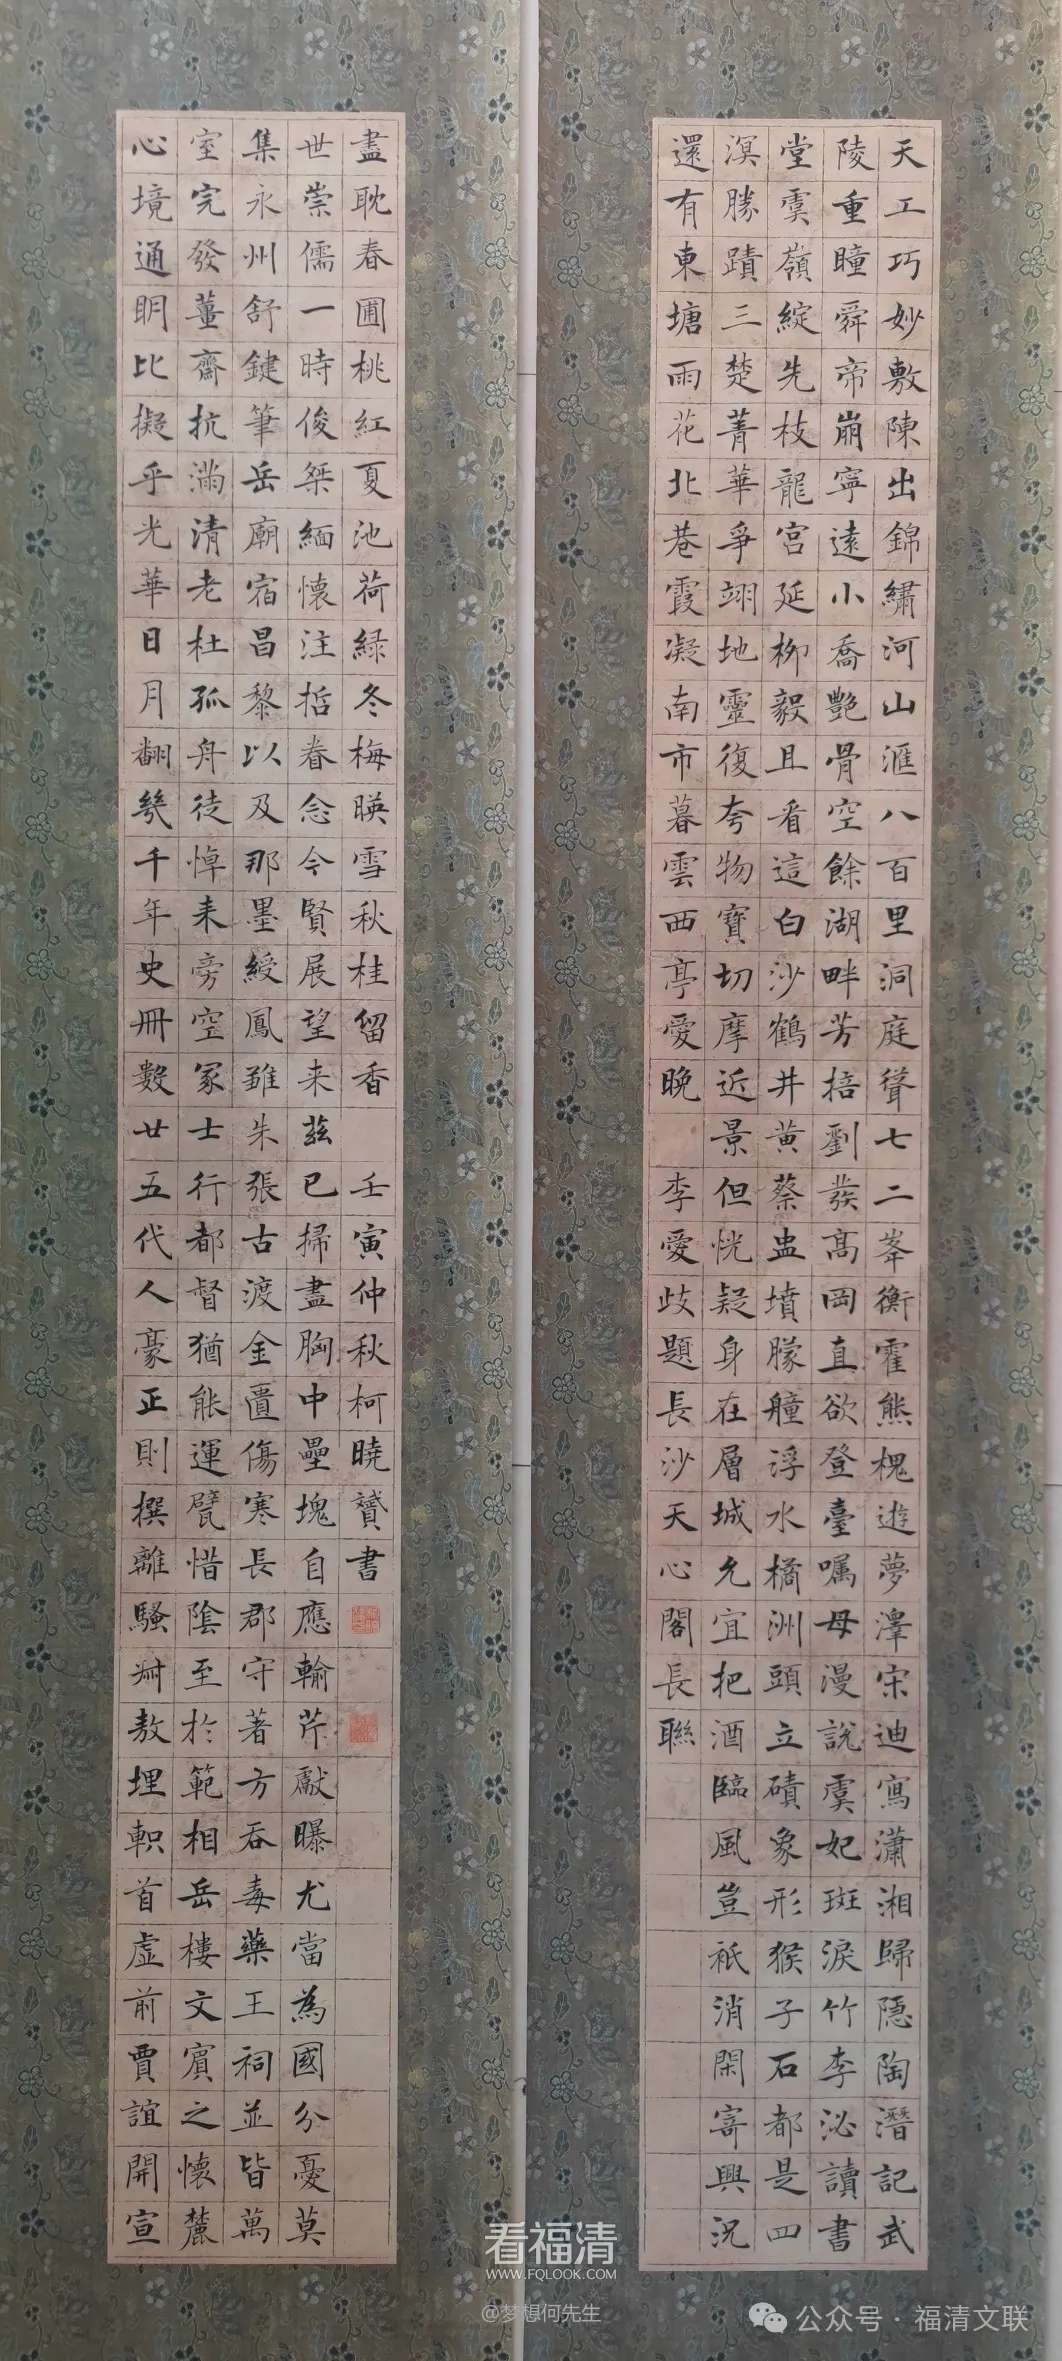 天工巧妙敷陳出錦繡河山滙八百里洞庭聳七二峯衡霍熊槐遊夢澤宋迪寫瀟湘歸隱陶潛記武
陵重瞳舜帝崩寧遠小喬艷骨空餘湖畔芳掊劉發高岡直欲登臺嘱母漫說虞妃斑淚竹李泌讀書
堂虞嶺綻先枝龍宮延柳毅且看這白沙鶴井黃蔡蛊墳朦艟浮水橘洲頭立磧象形猴子石都是四
溟勝蹟三楚菁華爭翊地靈復夸物寶切摩近景但恍疑身在層城允宜把酒臨風豈祇消閑寄興況
還有東塘雨花北巷霞凝南市暮雲西亭愛晚 李愛歧題長沙天心閣長聯
心境通明比擬乎光華日月翻幾千年史冊數廿五代人豪正則撰離騷叔敖埋軹首虛前賈誼開宣
室完發薑齋抗滿清老杜孤舟徒悼耒旁空冢士行都督猶能運甓惜陰至於範相岳樓文賓之懷麓
集永州舒鍵筆岳廟宿昌黎以及那墨綬鳳雛朱張古渡金匱傷寒長郡守著方吞毒藥王祠並皆萬
世崇儒一時俊桀緬懷注哲眷念今賢展望来茲已掃盡胸中壘塊自應輸芹獻曝尤當為國分憂莫
盡耽春圃桃紅夏池荷緑冬梅暎雪秋桂留香 壬寅仲秋柯曉贇書
看福清
WWW.FQLOOK.COM
@梦想何先生
公众号·福清文联